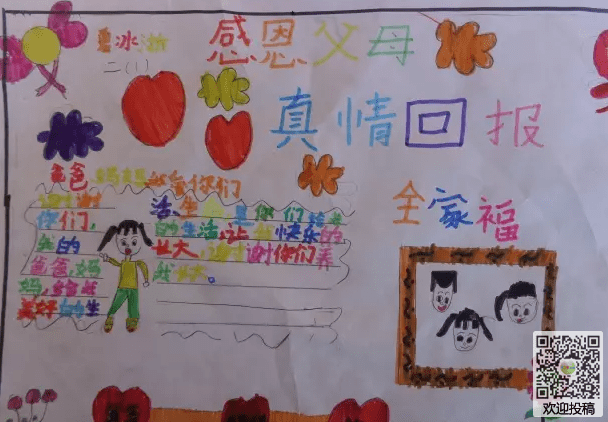 冰
感恩父母
二(1)
真情回报
爸爸妈妈我爱你们
谢谢
你们,
我的
爸爸,妈
妈,给我
美好的生
活,生
是你们给我
的生活,让我快乐的
长大,谢谢你们养
我长大。
全家福
欢迎投稿